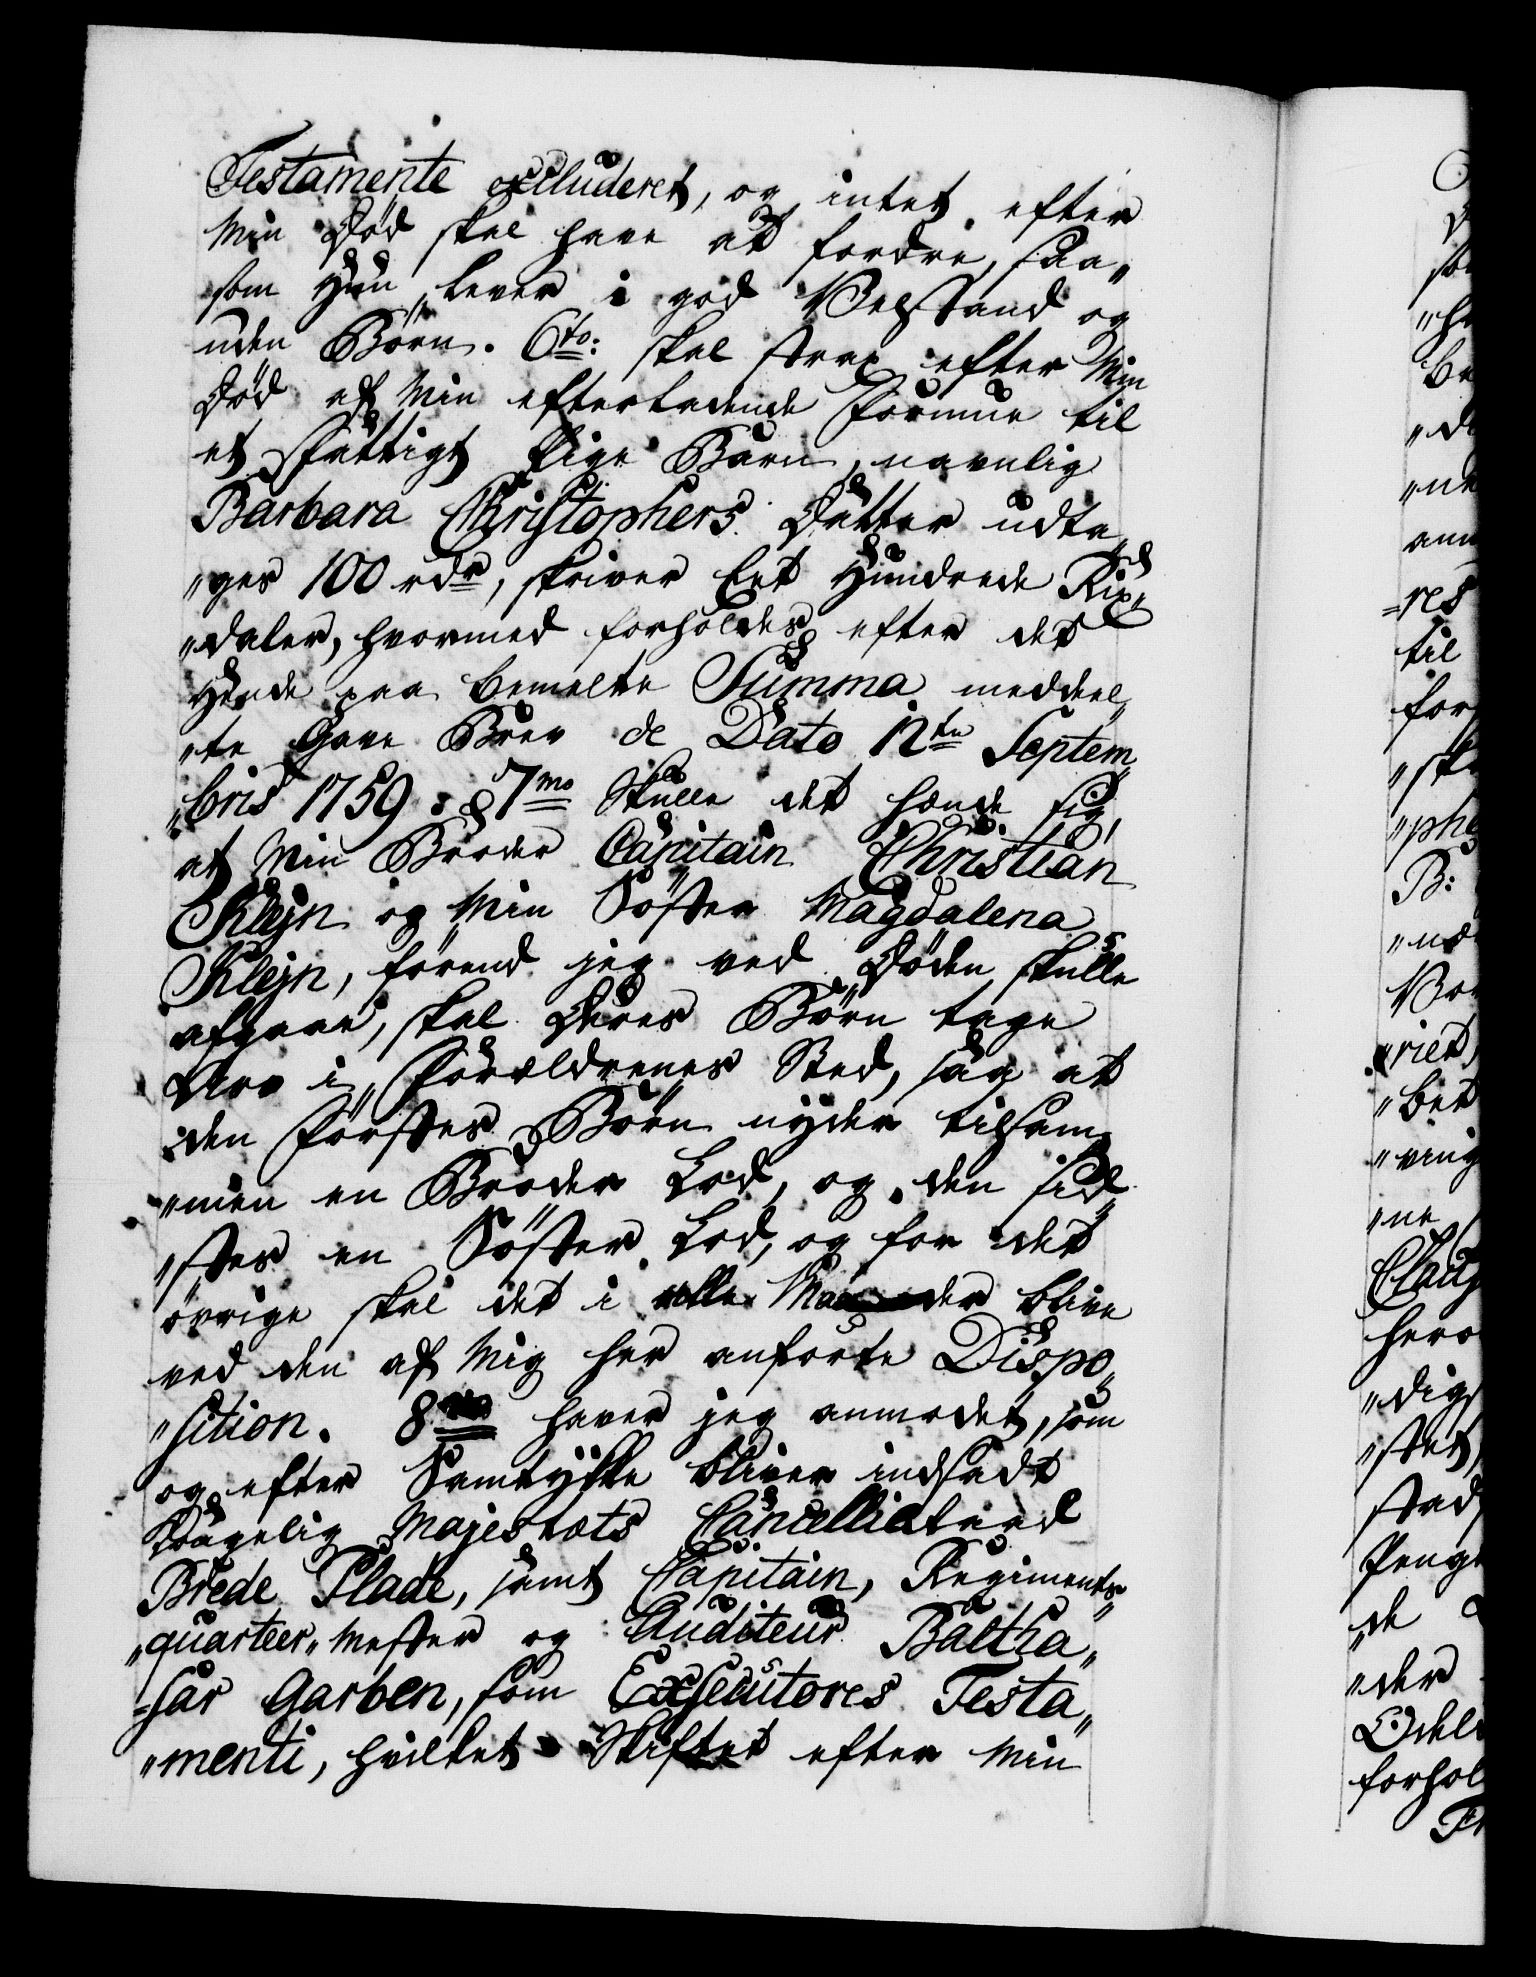 Testamente excluderet, og intet efter
Min Död skal have at fordre, saa„
som Hun lever i god Velstand og
uden Börn. 6to: skal strax efter Min
Död af Min efterladende Formue til
et fattigt Pige Barn, navnlig
Barbara Christophers Datter udta„
„ges 100 rdr, skriver Eet Hundrede Rix„
„daler, hvormed forholdes efter det
Hende paa bemelte Summa meddeel„
„te Gave Brev de Dato 12te Septem„
„bris 1759: 7mo Skulle det hænde sig,
at Min Broder Capitain Christian
Klejn og Min Söster Magdalena
Klejn, förend jeg ved Döden skulle
afgaae, skal Deres Börn tage
Arv i Forældrenes Sted, saa at
den förstes Börn nyder tilsam„
„men en Broder Lod, og den sid„
„stes en Söster Lod, og for det
övrige skal det i alle Maader blive
ved den af Mig her anforte Dispo„
„sition. 8vo haver jeg anmodet, som
og efter Samtykke bliver indsadt
Kongelig Majestæts Cancellieraad
Brede Plade, samt Capitain, Regiments„
„quarteer„Mester og Auditeur Baltha„
=sar Garben, som Exsecutores Testa„
„menti, hvilket Skiftet efter Min
res
til